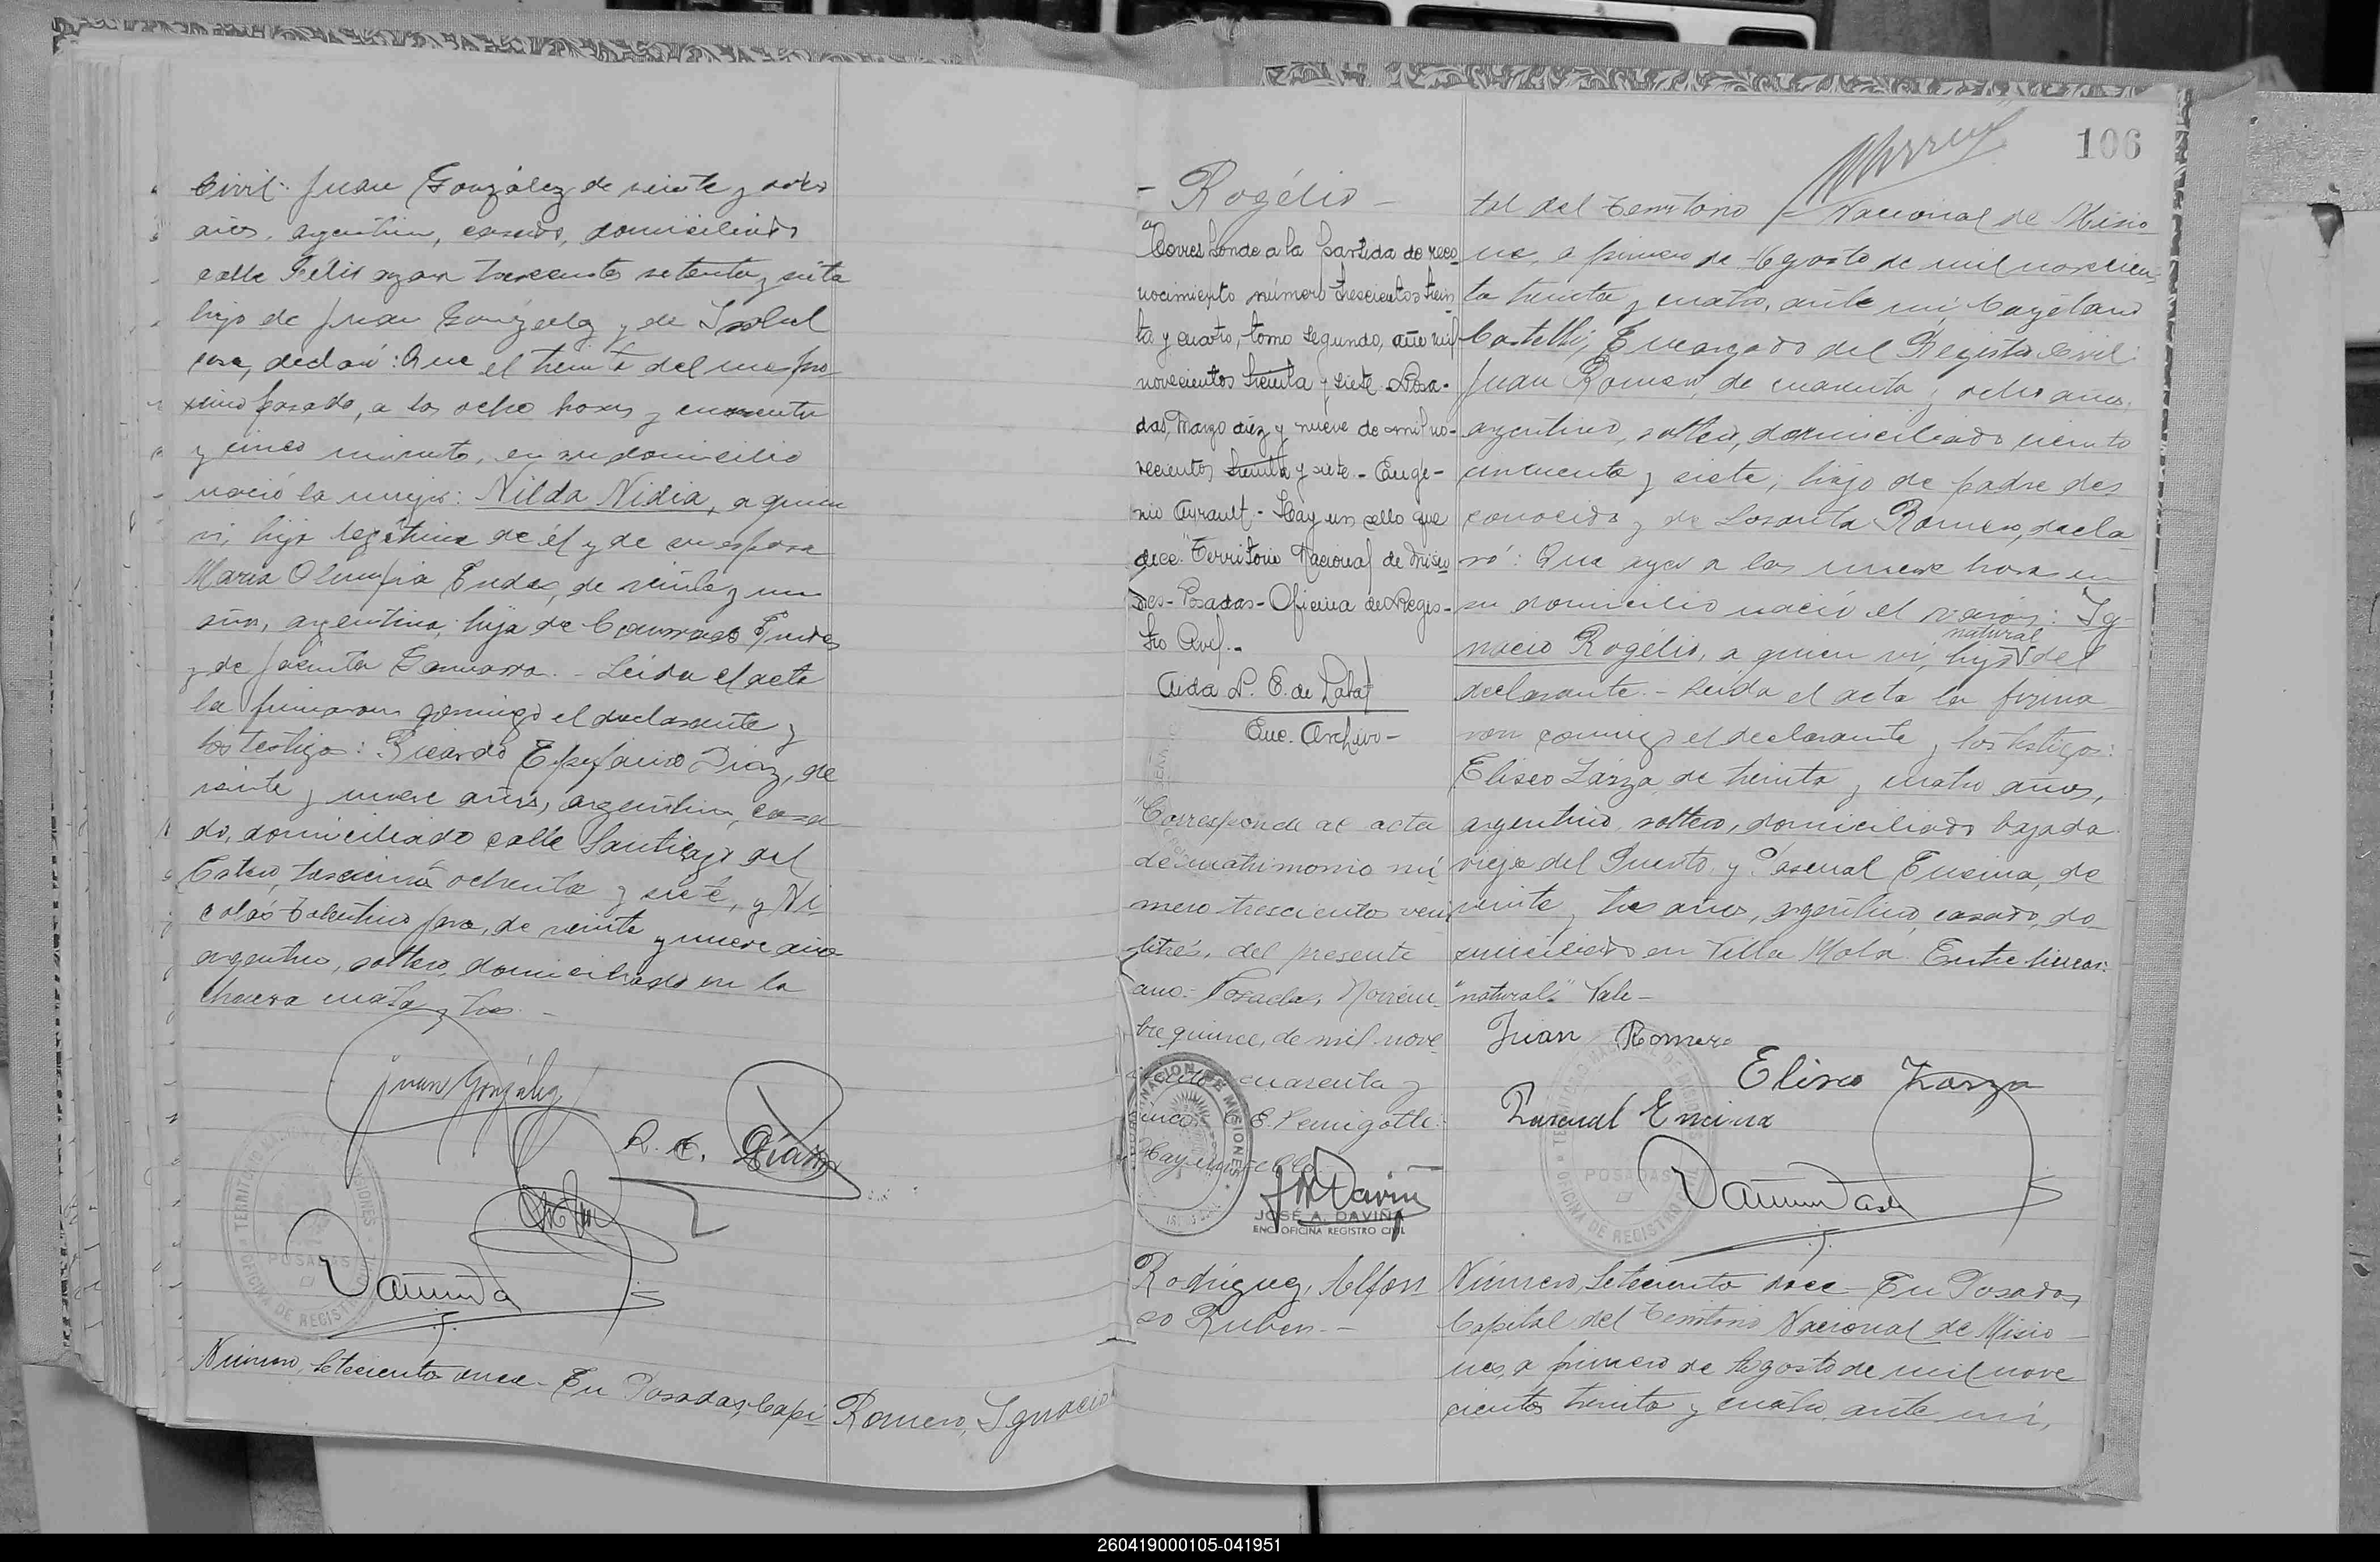 Civil: Juan González de veinte y dos
años, argentino, casado, domiciliado
calle Félix Azara trescientos setenta y siete
hijo de Juan González y de Isabel
declaró: Que el treinta del mes pró-
ximo pasado, a las ocho horas y cuarenta
y cinco minutos, en su domicilio
nació la mujer: Nilda Nidia, a quien
vi, hija legítima de él y de su esposa
María Olimpia de veinte y un
años, argentina, hija de
y de Jacinta - Leida el acta
la firmaron conmigo el declarante y
los testigos: Ricardo Epifanio Diaz, de
veinte y nueve años, argentino, casa
do, domiciliado calle Santiago del
Estero, trescientos ochenta y siete, y Ni-
colás Tolentino de veinte y nueve años
argentino, soltero, domiciliado en la
chacra cuarenta y tres. -
Juan González
R. E. Díaz
TERRITORIO NACIONAL DE MISIONES
POSADAS
OFICINA DE REGISTRO CIVIL
Número, Setecientos once - En Posadas, Capi
Romero, Ignacio
106
- Rogélio -
"Corresponde a la partida de reco-
nocimiento número trescientos trein
ta y cuatro, tomo segundo, año mil
novecientos treinta y siete. Posa-
das, Marzo diez y nueve de mil no-
vecientos treinta y siete. - Euge-
nio Ayrault - Hay un sello que
dice: "Territorio Nacional de Misio
nes - Posadas - Oficina de Regis-
tro Civil. -
Aida
Enc. Archivo -
"Corresponde al acta
de matrimonio nú
mero trescientos vein
titrés, del presente
año.- Posadas, Noviem
bre quince, de mil nove
cientos cuarenta y
cinco E.
Hay un sello
JOSÉ A. DAVIÑA
ENC. OFICINA REGISTRO CIVIL
tal del Territorio Nacional de Misio
nes, a primero de Agosto de mil novecien-
tos treinta y cuatro, ante mí, Cayetano
Castelli, Encargado del Registro Civil:
Juan Romero, de cuarenta y ocho años,
argentino, soltero, domiciliado ciento
cincuenta y siete, hijo de padre des
conocido y de Losanta Romero, decla-
ró: Que ayer a las nueve horas en
su domicilio nació el varón: Ig-
natural
nacio Rogélio, a quien vi, hijo del
declarante. - Leida el acta la firma-
ron conmigo el declarante y los testigos:
Eliseo Zarza de treinta y cuatro años,
argentino, soltero, domiciliado bajada
vieja del Puerto, y Pascual Encina, de
veinte y tres años, argentino, casado, do-
miciliado en Villa Mola. Entre lineas:
"natural." Vale -
Juan Romero
Eliseo Zarza
Pascual Encina
POSADAS
Rodríguez, Alfon
so Ruben. -
Número, Setecientos doce - En Posadas,
Capital del Territorio Nacional de Misio-
nes, a primero de Agosto de mil nove
cientos treinta y cuatro, ante mí,
260419000105-041951